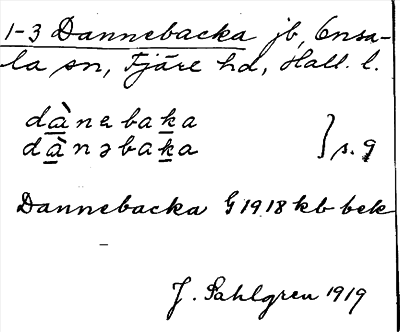 1-3 Dannebacka jb, Onsa-
la sn, Fjäre hd, Hall. l.
dànebaka
dànəbaka } s. g
Dannebacka G 1918 kb bek
J. Sahlgren 1919